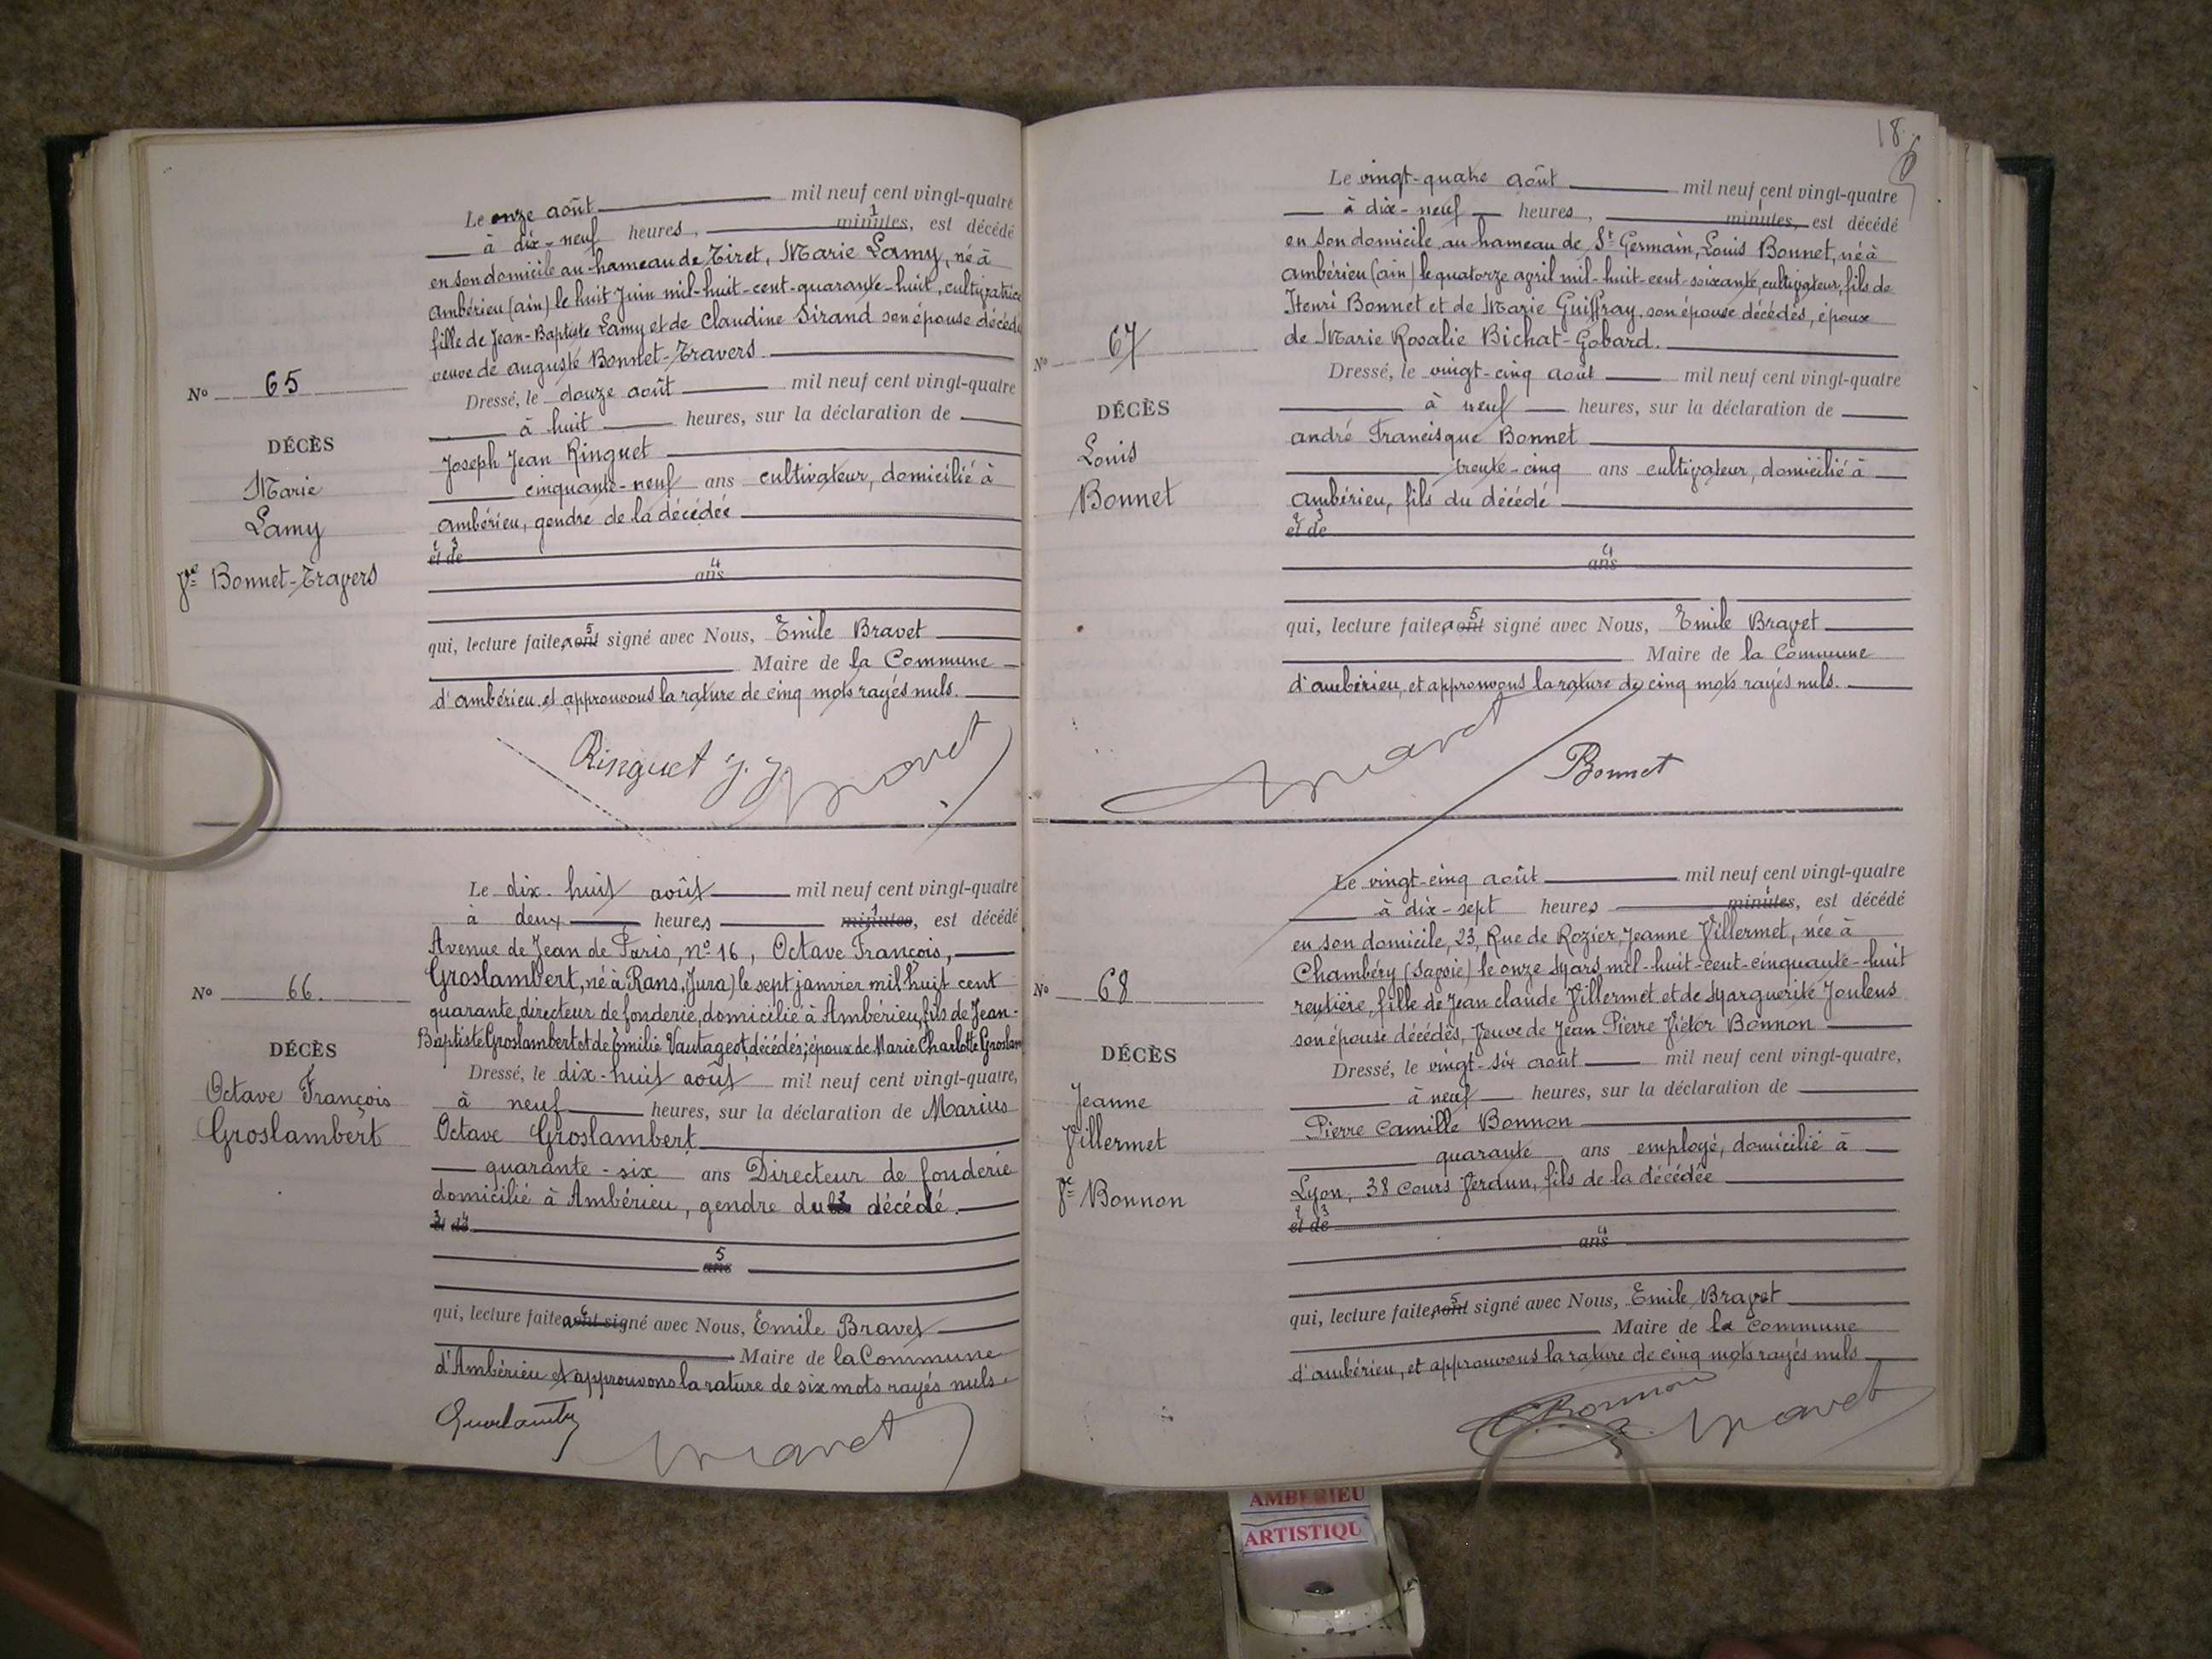 Le onze août mil neuf cent vingt-quatre
à dix-neuf heures, minutes, est décédé
en son domicile au hameau de Tiret, Marie Lamy, né à
Ambérieu (ain) le huit Juin mil-huit-cent-quarante-huit, cultivatrice
fille de Jean-Baptiste Lamy et de Claudine Sirand son épouse décédés
veuve de auguste Bonnet-Travers
Dressé, le douze août mil neuf cent vingt-quatre
à huit heures, sur la déclaration de
Joseph Jean Ringuet
cinquante-neuf ans cultivateur, domicilié à
Ambérieu, gendre de la décédée
et de
ans
qui, lecture faite, a ont signé avec Nous, Emile Bravet
Maire de la Commune
d'ambérieu, et approuvons la rature de cinq mots rayés nuls.
Nº 65
DÉCÈS
Marie
Lamy
Vve Bonnet-Travers
Ringuet J. J. Bravet
Le dix-huit août mil neuf cent vingt-quatre
à deux heures minutes, est décédé
Avenue de Jean de Paris, nº 16, Octave François,
Groslambert, né à Rans, (Jura) le sept janvier mil huit cent
quarante, directeur de fonderie, domicilié à Ambérieu, fils de Jean-
Baptiste Groslambert et de Emilie Vautageot, décédés; époux de Marie Charlotte Groslam
Dressé, le dix-huit août mil neuf cent vingt-quatre,
à neuf heures, sur la déclaration de Marius
Octave Groslambert
quarante-six ans Directeur de fonderie
domicilié à Ambérieu, gendre du décédé.
ans
qui, lecture faite a ont signé avec Nous, Emile Bravet
Maire de la Commune
d'Ambérieu et approuvons la rature de six mots rayés nuls.
Nº 66.
DÉCÈS
Octave François
Groslambert
Bravet
18
Le vingt-quatre août mil neuf cent vingt-quatre
à dix-neuf heures, minutes, est décédé
en son domicile au hameau de St Germain, Louis Bonnet, né à
Ambérieu (ain) le quatorze avril mil-huit-cent-soixante, cultivateur, fils de
Henri Bonnet et de Marie Guiffray, son épouse décédés, époux
de Marie Rosalie Bichat-Gobard.
Dressé, le vingt-cinq août mil neuf cent vingt-quatre
à neuf heures, sur la déclaration de
andré Francisque Bonnet
trente-cinq ans cultivateur, domicilié à
Ambérieu, fils du décédé
et de
ans
qui, lecture faite, a ont signé avec Nous, Emile Bravet
Maire de la Commune
d'ambérieu, et approuvons la rature de cinq mots rayés nuls.
Nº 67
DÉCÈS
Louis
Bonnet
Bravet Bonnet
Le vingt-cinq août mil neuf cent vingt-quatre
à dix-sept heures minutes, est décédé
en son domicile, 23, Rue de Rozier, Jeanne Villermet, née à
Chambéry (Savoie) le onze Mars mil-huit-cent-cinquante-huit
rentière, fille de Jean claude Villermet et de Marguerite Joulens
son épouse décédés, Veuve de Jean Pierre Victor Bonnon
Dressé, le vingt-six août mil neuf cent vingt-quatre,
à neuf heures, sur la déclaration de
Pierre Camille Bonnon
quarante ans employé, domicilié à
Lyon, 38 Cours Verdun, fils de la décédée
et de
ans
qui, lecture faite, a ont signé avec Nous, Emile Bravet
Maire de la Commune
d'ambérieu, et approuvons la rature de cinq mots rayés nuls
Nº 68
DÉCÈS
Jeanne
Villermet
Vve Bonnon
Bonnon Bravet
AMBERIEU
ARTISTIQU